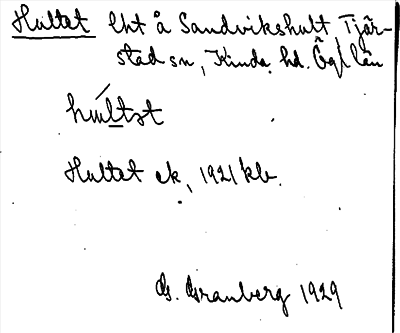 Hultet lht å Sandvikshult, Tjär-
stad sn, Kinda hd. Ögl län
Hultet ek, 1921 kb.
G. Granberg 1929